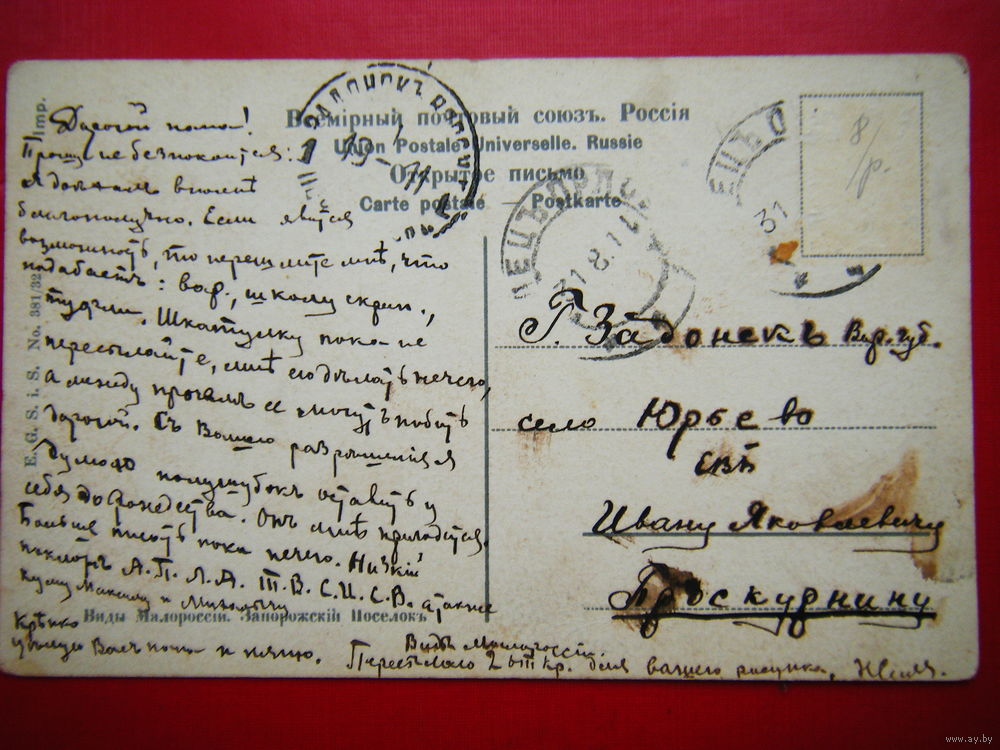 Всемірный почтовый союзъ. Россія
Union Postale Universelle. Russie
Открытое письмо
Carte postale — Postkarte
Imp.
E. G. S. i. S. No. 381/32
Дорогой папа!
Прошу не безпокоится:
я доехалъ вполнѣ
благополучно. Если явится
возможность, то перешлите мнѣ, что
надобастъ: вар., школу скрип.,
туфли. Шкатулку пока не
пересылайте, мнѣ его дѣлать нечего,
а между прочимъ ее могутъ побить
дорогой. Съ Вашего разрѣшенія
думаю полушубокъ оставить у
себя до Рождества. Онъ мнѣ пригодится.
Больше писать пока нечего. Низкій
поклонъ А. П. Л. А. Т. В. С. И. С. В. а также
куму Максиму и Михаилу
Крѣпко
цѣлую Васъ папа и няню.
Виды Малороссіи. Запорожскій Поселокъ
Виды Малороссіи.
Пересылаю 2 кр. для вашего рисунка,
31
8/р.
Г. Задонскъ Вор. губ.
село Юрьево
ЕВБ
Ивану Яковлевичу
Проскурнину
ЗАДОНСКЪ ВОРОН.
ЕЦЪ ОРЛ
31 8 11
www.ay.by